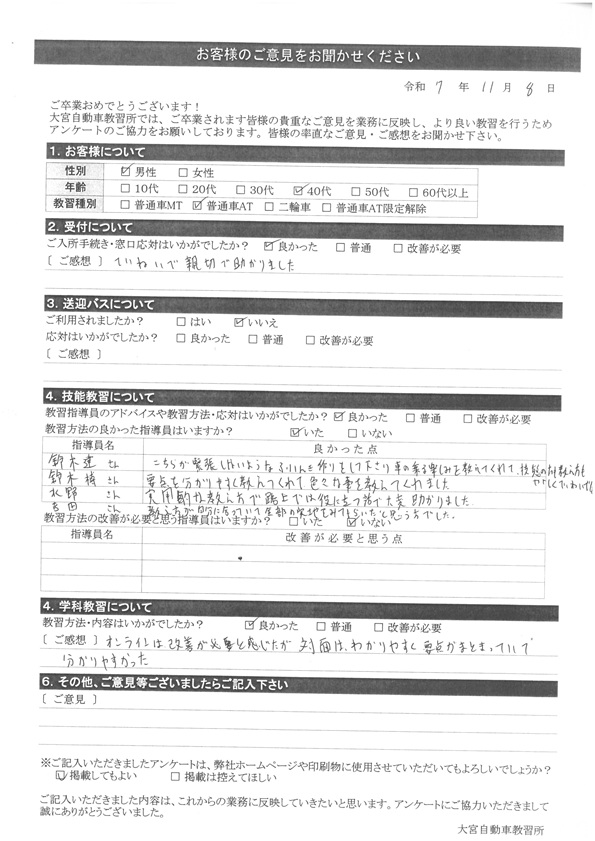 お客様のご意見をお聞かせください
令和 7 年 11 月 8 日
ご卒業おめでとうございます!
大宮自動車教習所では、ご卒業されます皆様の貴重なご意見を業務に反映し、より良い教習を行うため
アンケートのご協力をお願いしております。皆様の率直なご意見・ご感想をお聞かせ下さい。
1. お客様について
性別 ☑ 男性 □ 女性
年齢 □ 10代 □ 20代 □ 30代 ☑ 40代 □ 50代 □ 60代以上
教習種別 □ 普通車MT ☑ 普通車AT □ 二輪車 □ 普通車AT限定解除
2. 受付について
ご入所手続き・窓口応対はいかがでしたか? ☑ 良かった □ 普通 □ 改善が必要
〔 ご感想 〕 ていねいで親切で助かりました
3. 送迎バスについて
ご利用されましたか? □ はい ☑ いいえ
応対はいかがでしたか? □ 良かった □ 普通 □ 改善が必要
〔 ご感想 〕
4. 技能教習について
教習指導員のアドバイスや教習方法・応対はいかがでしたか? ☑ 良かった □ 普通 □ 改善が必要
教習方法の良かった指導員はいますか? ☑ いた □ いない
指導員名 良かった点
鈴木 さん こちらが緊張しないようなふいんき作りをして下さり車の乗る楽しみを教えてくれて、
鈴木 さん 要点を分かりやすく教えてくれて色々な事を教えてくれました
水野 さん 実用的な教え方で路上では役に立つ話で大変助かりました
吉田 さん
教習方法の改善が必要と思う指導員はいますか? □ いた ☑ いない
指導員名 改善が必要と思う点
4. 学科教習について
教習方法・内容はいかがでしたか? ☑ 良かった □ 普通 □ 改善が必要
〔 ご感想 〕 オンラインは改善が必要と感じたが 対面は、わかりやすく要点がまとまっていて
分かりやすかった
6. その他、ご意見等ございましたらご記入下さい
〔 ご意見 〕
※ご記入いただきましたアンケートは、弊社ホームページや印刷物に使用させていただいてもよろしいでしょうか?
☑ 掲載してもよい □ 掲載は控えてほしい
ご記入いただきました内容は、これからの業務に反映していきたいと思います。アンケートにご協力いただきまして
誠にありがとうございました。
大宮自動車教習所